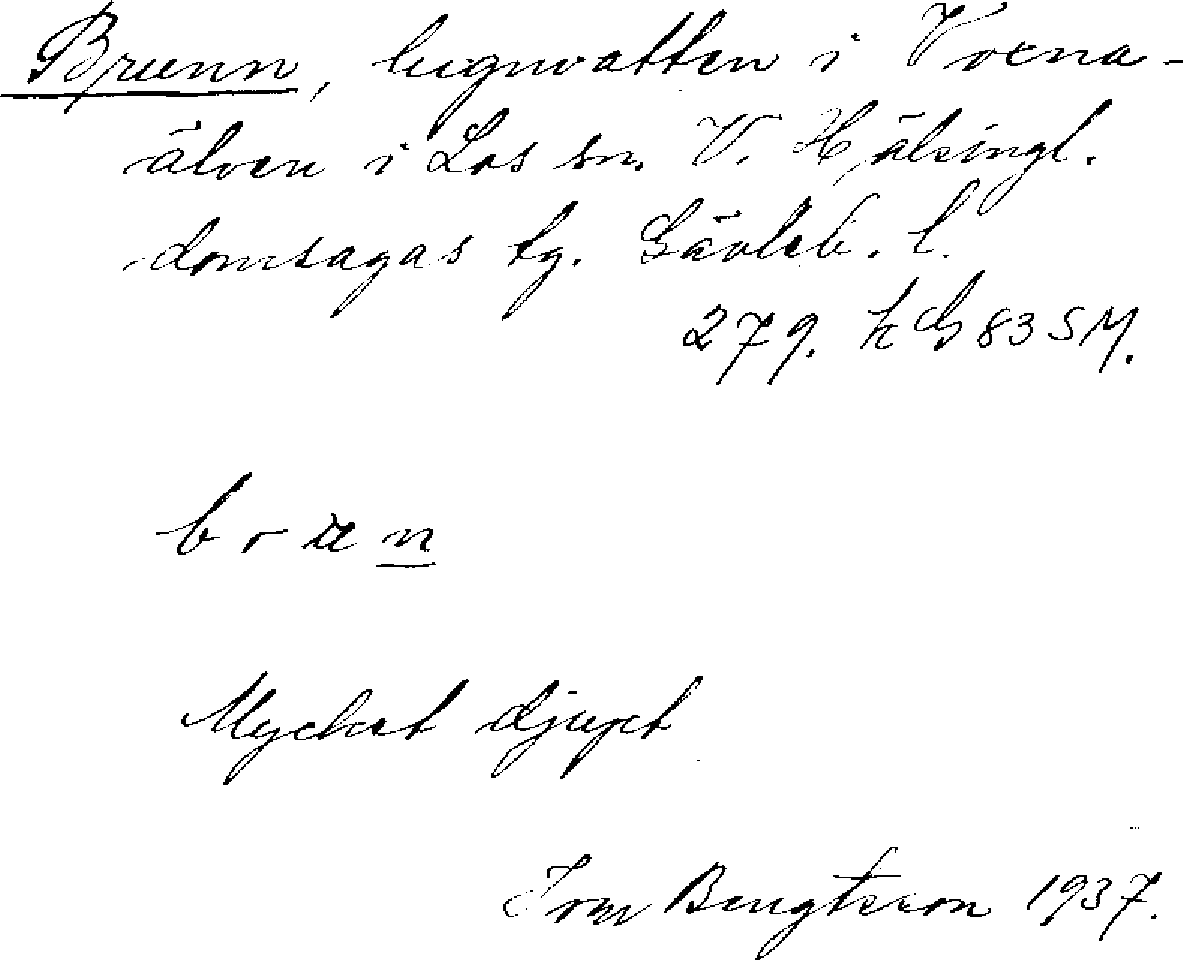 Brunn, lugnvatten i Voxna-
älven i Los sn. V. Hälsingl.
domsagas tg. Gävleb. l.
279. k G 83 SM.
b r u n
Mycket djupt
Tom Bengtsson 1937.